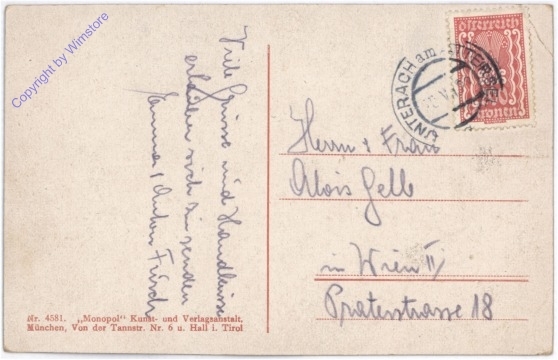 Copyright by Winstore
Viele Grüsse und Handküsse
erlauben sich zu senden
Emma & Anton
Österreich
Kronen
UNTERACH am ATTERSEE
Herrn & Frau
Alois Gelb
in Wien II/
Praterstrasse 18
Nr. 4581. „Monopol“ Kunst- und Verlagsanstalt.
München, Von der Tannstr. Nr. 6 u. Hall i. Tirol